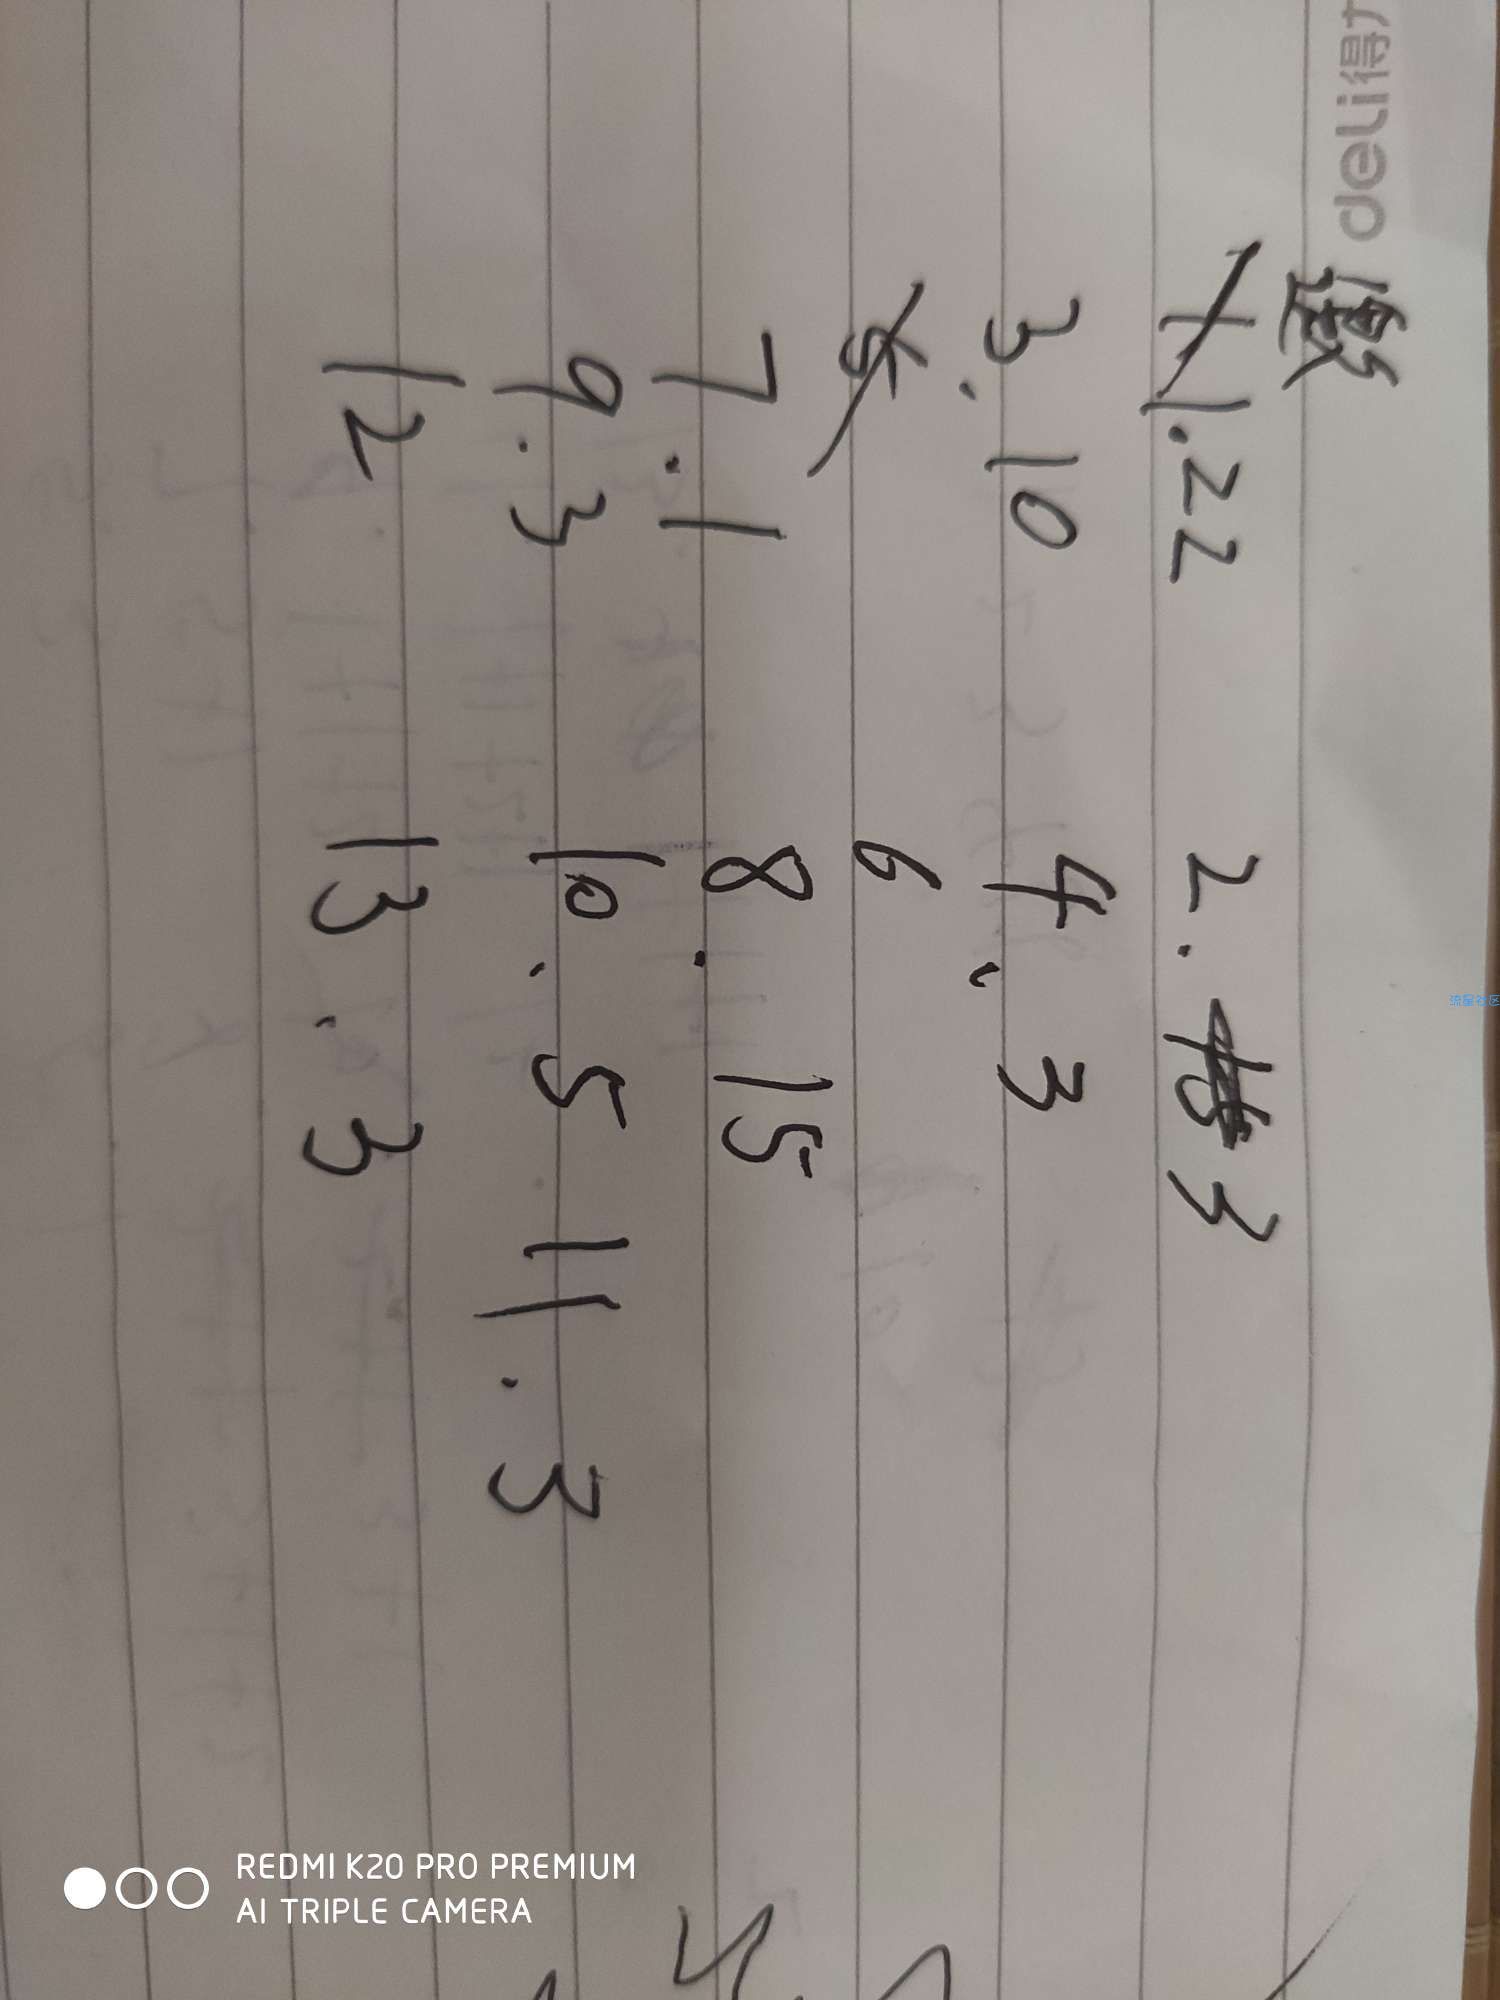 deli得力
1.22 2. 3
3. 10 4. 3
6
7. 1 8. 15
9. 3 10. 5 11. 3
12 13. 3
流星社区
REDMI K20 PRO PREMIUM
AI TRIPLE CAMERA